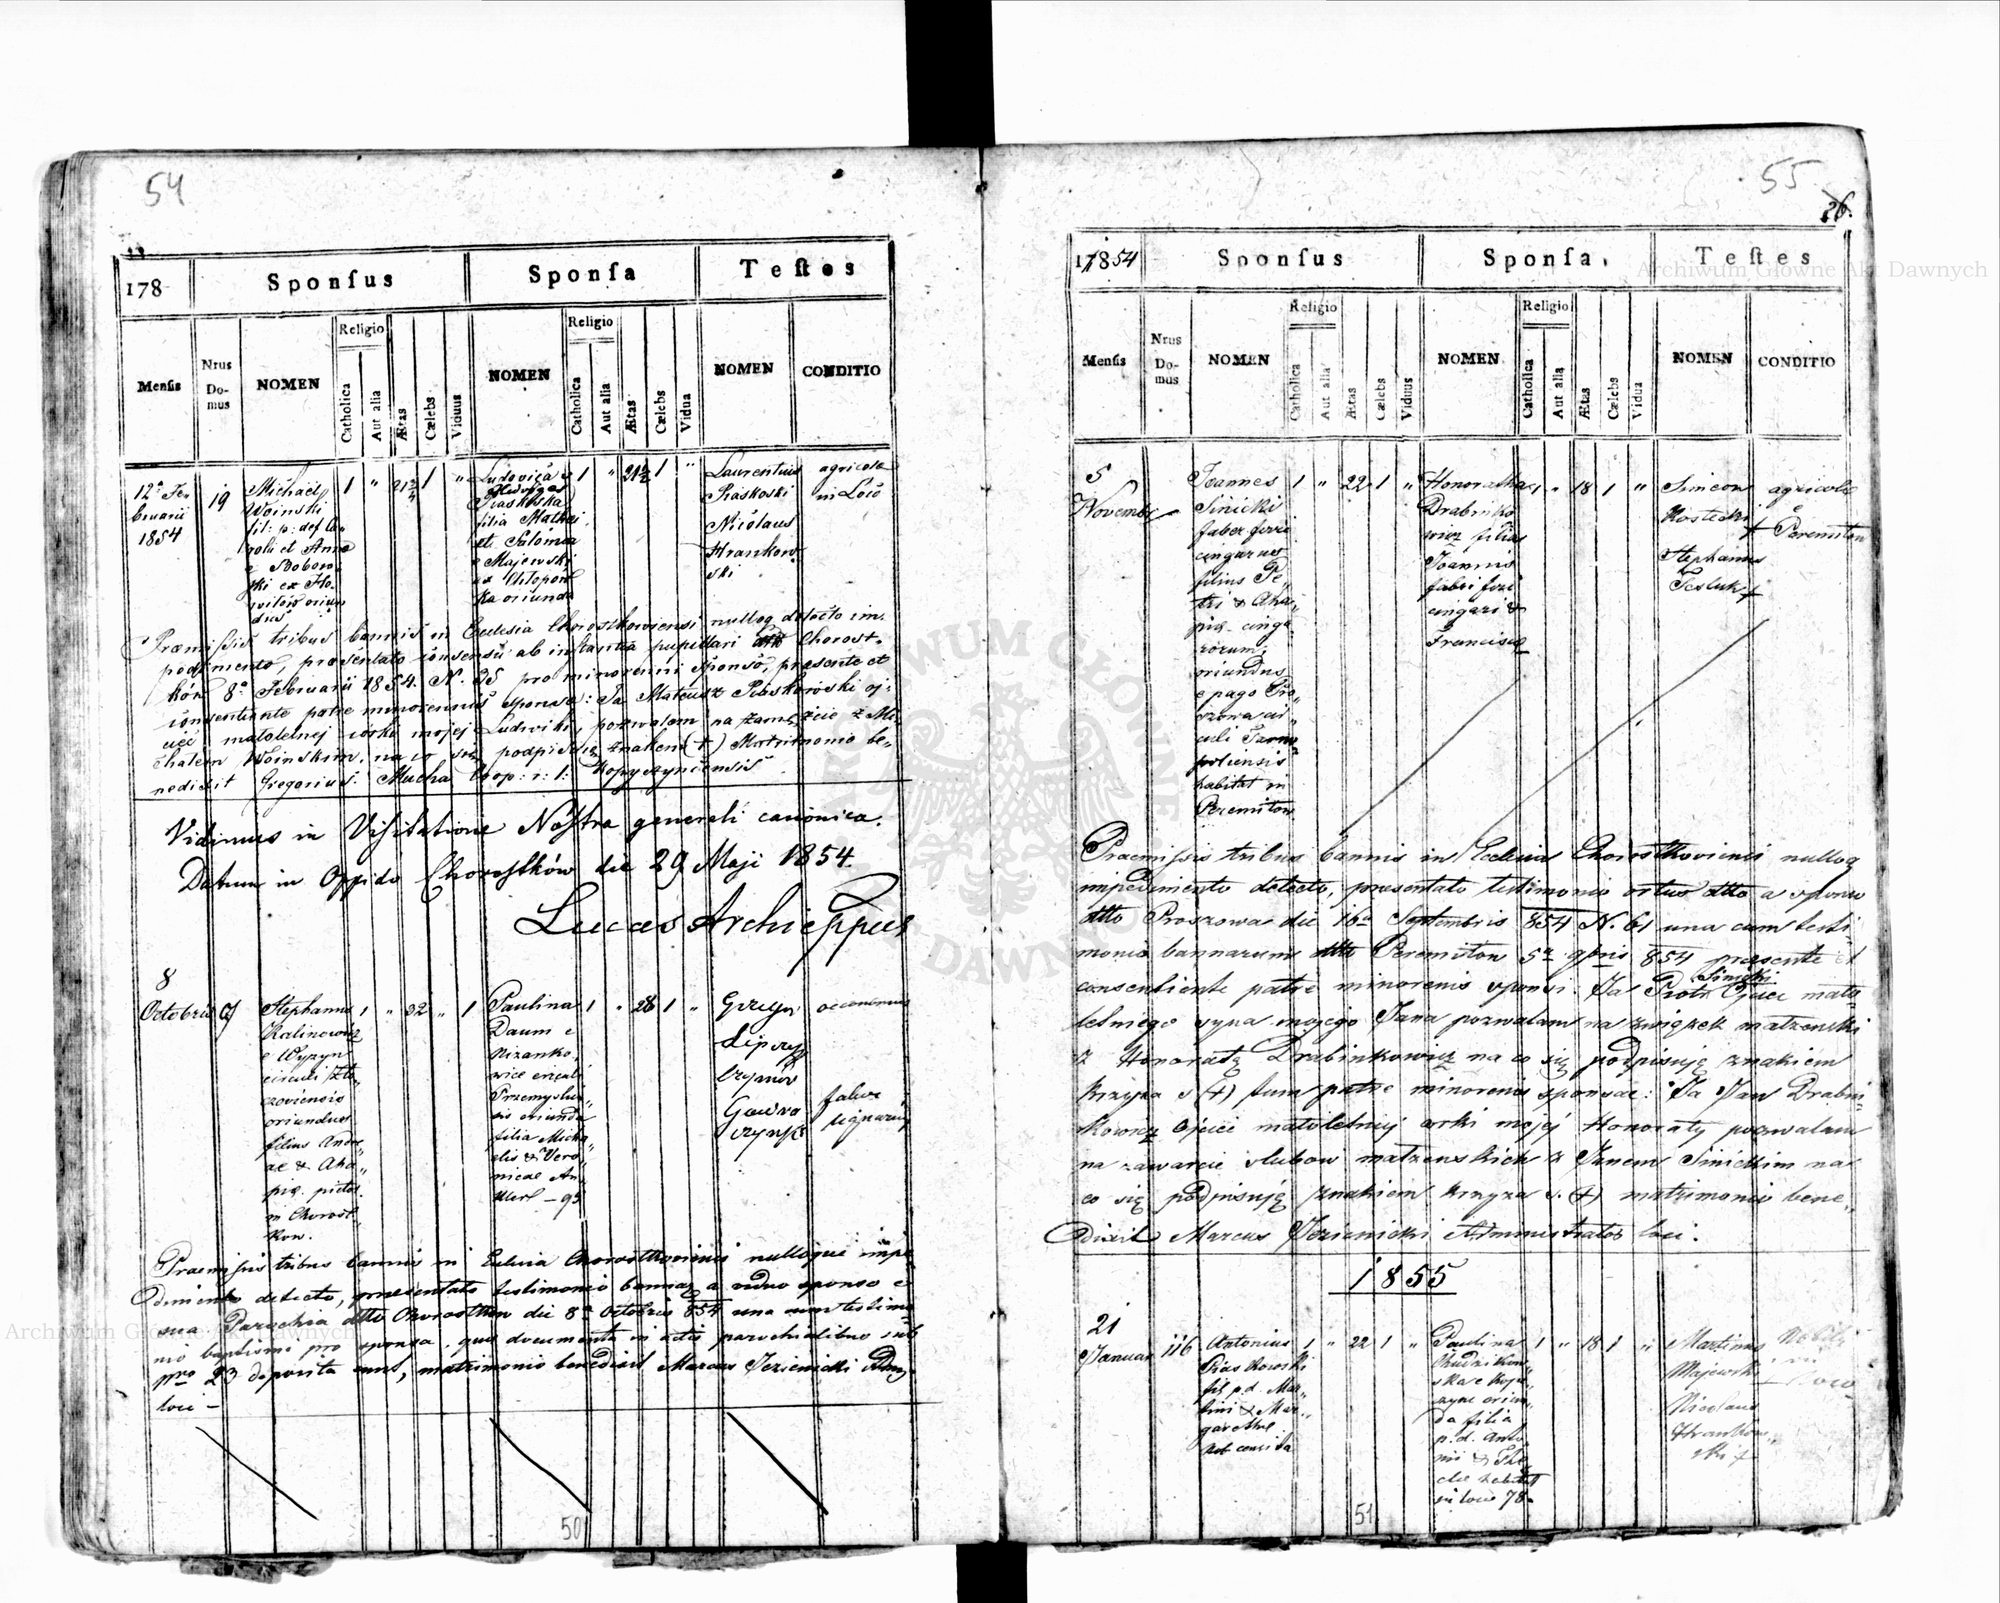 54
178
Sponſus
Sponſa
Teſtes
Menſis
Nrus Do-mus
NOMEN
Religio
Catholica
Aut alia
Ætas
Cælebs
Viduus
NOMEN
Religio
Catholica
Aut alia
Ætas
Cælebs
Vidua
NOMEN
CONDITIO
12ª Fe-
bruarii
1854
19
Michael
Woinski
fil: p: def Ca-
roli et Anna
e Bobow
ski ex Ho-
1
"
1
"
Ludovica
Hedvigas
Piaskoska
filia Mathei
et Salomea
e Majewski
ex Chłopów
ka oriunda
1
"
21½
1
"
Laurentius
Piaskoski
Nicolaus
Hrankow
ski
agricolae
in Loco
Præmissis tribus bannis in Ecclesia Chorostkowiensi nulloq detecto im-
pedimento, præsentato consensu ab instantia pupillari dtto Chorost-
ków 8ª Februarii 1854. N. 25 pro minorenni sponso, præsente et
consentiente patre minorennis sponsæ: Ja Mateusz Piaskowski oj-
ciec małoletnej córki mojej Ludwiki, pozwalam na zamęzcie z Mi-
chałem Woinskim, na co się podpisuię znakem (+) Matrimonio be-
nedixit Gregorius Mucha Coop: r: l: Kopyczynčensis
Vidimus in Visitatione Nostra generali canonica.
Datum in Oppido Chorostków die 29 Maji 1854.
Lucas Archieppus
8
Octobris
Stephanus
Kalinowicz
e Wyzyn
circuli Zło-
czoviensis
oriundus
filius Andre-
ae & Aha-
pix. pictor
in Chorost-
kow.
1
"
32
"
1
Paulina
Daum e
Nizanko-
wice circuli
Przemyslien-
sis oriunda
filia Micha-
elis & Vero-
nicae An-
1
"
28
1
"
Grzegorz
Lipczyń
Gawro
oeconomus
faber
lignarius
Praemissis tribus bannis in Ecclesia Chorostkoviensi nulloque impe-
dimento detecto, praesentato testimonio bannar a viduo sponso e
sua Parochia dtto Chorostkow die 8ª Octobris 854 una cum testimo-
nio baptismi pro sponsa, quae documenta in actis parochialibus sub
Nro 23 deposita sunt, matrimonio benedixit Marcus Jezienicki Adm
loci -
50
55
26.
17854
Sponſus
Sponſa.
Teſtes
Menſis
Nrus Do-mus
NOMEN
Religio
Catholica
Aut alia
Ætas
Cælebs
Viduus
NOMEN
Religio
Catholica
Aut alia
Ætas
Cælebs
Vidua
NOMEN
CONDITIO
5
Novembr
Joannes
Sinicki
faber ferri
cingarus
filius Pe-
tri & Aha-
pix. cinga-
rorum,
oriundus
e pago Pro-
szowa cir-
culi Tarno-
poliensis
habitat in
Peremiłow
1
"
22
1
"
Honoratha
Drabinko
wicz filia
Joannis
fabri ferri
cingari &
Francisca
1
"
18
1
"
Simeon
Kostecki
+
Stephanus
Tesluk +
agricolae
e
Peremiłow
Praemissis tribus bannis in Ecclesia Chorostkoviensi nulloq
impedimento detecto, praesentato testimonio ortus dtto a sponso
dtto Proszowa die 16ª Septembris 854 N. 61 una cum testi-
monio bannarum dtto Peremiłow 5ª 9bris 854 praesente et
consentiente patre minorenis sponsi. Ja Piotr Sinicki Ojciec mało
letniego syna mojego Jana pozwalam na związek małzenski
z Honoratą Drabinkowicz na co się podpisuję znakiem
krzyża s (+) tum patre minorenis sponsae: Ja Jan Drabin-
kowicz Ojciec małoletniej corki mojej Honoraty pozwalam
na zawarcie slubow małzenskich z Janem Sinickim na
co się podpisuję znakiem krzyza s. (+) matrimonio bene-
dixit Marcus Jezienicki Administrator loci.
1855
21
Januar
116
Antonius
Piaskowski
fil p.d. Mar-
tini & Mar-
garethae
1
"
22
1
"
Paulina
oriun-
da filia
p.d. Anto-
nii & The-
clae habitat
in loco 78
1
"
18
1
"
Martinus
Majewski
Nicolaus
Hrankow-
ski +
nobiles
in
loco
51
Archiwum Główne Akt Dawnych
Archiwum Główne Akt Dawnych
ARCHIWUM GŁÓWNE AKT DAWNYCH